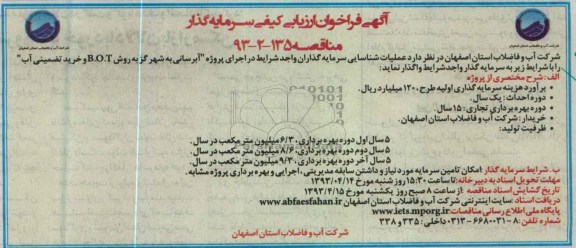 آگهی فراخوان ارزیابی کیفی سرمایه گذار
مناقصه ۱۳۵-۲-۹۳
شرکت آب و فاضلاب استان اصفهان در نظر دارد عملیات شناسایی سرمایه گذاران واجد شرایط در اجرای پروژه "آبرسانی به شهر گز به روش B.O.T و خرید تضمینی آب"
را با شرایط زیر به سرمایه گذار واجد شرایط واگذار نماید:
الف: شرح مختصری از پروژه
• برآورد هزینه سرمایه گذاری اولیه طرح: ۱۲۰ میلیارد ریال.
• دوره احداث: یک سال.
• دوره بهره برداری تجاری: ۱۵ سال.
• خریدار: شرکت آب و فاضلاب استان اصفهان.
• ظرفیت تولید:
۵ سال اول دوره بهره برداری، ۶/۳ میلیون متر مکعب در سال.
۵ سال دوم دوره بهره برداری، ۸/۶ میلیون متر مکعب در سال.
۵ سال آخر دوره بهره برداری، ۹/۳ میلیون متر مکعب در سال.
ب. شرایط سرمایه گذار: امکان تامین سرمایه مورد نیاز و داشتن سابقه مدیریتی، اجرایی و بهره برداری پروژه مشابه.
مهلت تحویل اسناد به دبیرخانه: تا ساعت ۱۵:۳۰ روز شنبه مورخ ۱۳۹۳/۰۴/۱۴
تاریخ گشایش اسناد مناقصه: از ساعت ۸ صبح روز یکشنبه مورخ ۱۳۹۳/۴/۱۵
دریافت اسناد: سایت اینترنتی شرکت آب و فاضلاب استان اصفهان www.abfaesfahan.ir
پایگاه ملی اطلاع رسانی مناقصات: www.iets.mporg.ir
شماره تلفن: ۸-۶۶۸۰۰۳۱-۰۳۱۳ داخلی: ۳۳۵ و ۳۳۸
شرکت آب و فاضلاب استان اصفهان